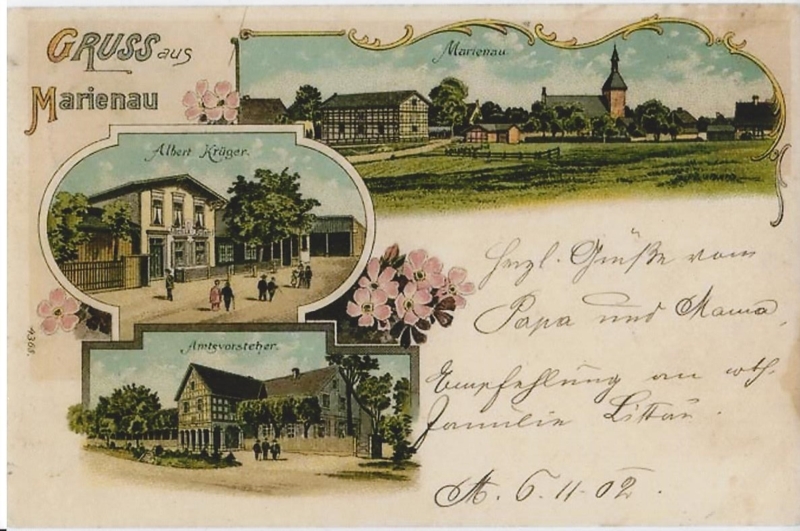 GRUSS aus
Marienau
Marienau.
Albert Krüger.
Amtsvorsteher.
1368.
Herzl. Grüße vom
Papa und Mama,
Empfehlung an
Familie Littau.
M. 6.11.02.